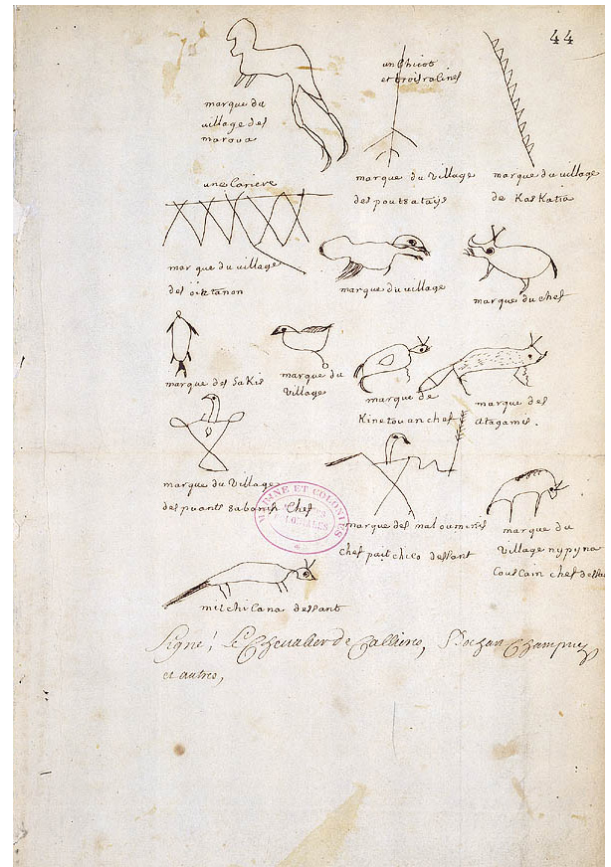 44
marque du
village des
maroua
un Chicot
et trois racines
marque du village
des poutsatays
marque du village
de KasKatia
marque du village
des
marque du village
marque du chef
marque des Sakis
marque du
village
marque de
Kinetouan chef
marque des
atagamis.
marque du village
des puants Chef
MARINE ET COLONIES
marque des
chef dessant
marque du
village nypyna
chef
dessant
Signé, Le Chevalier de Callieres, Bochart Champigny
et autres,